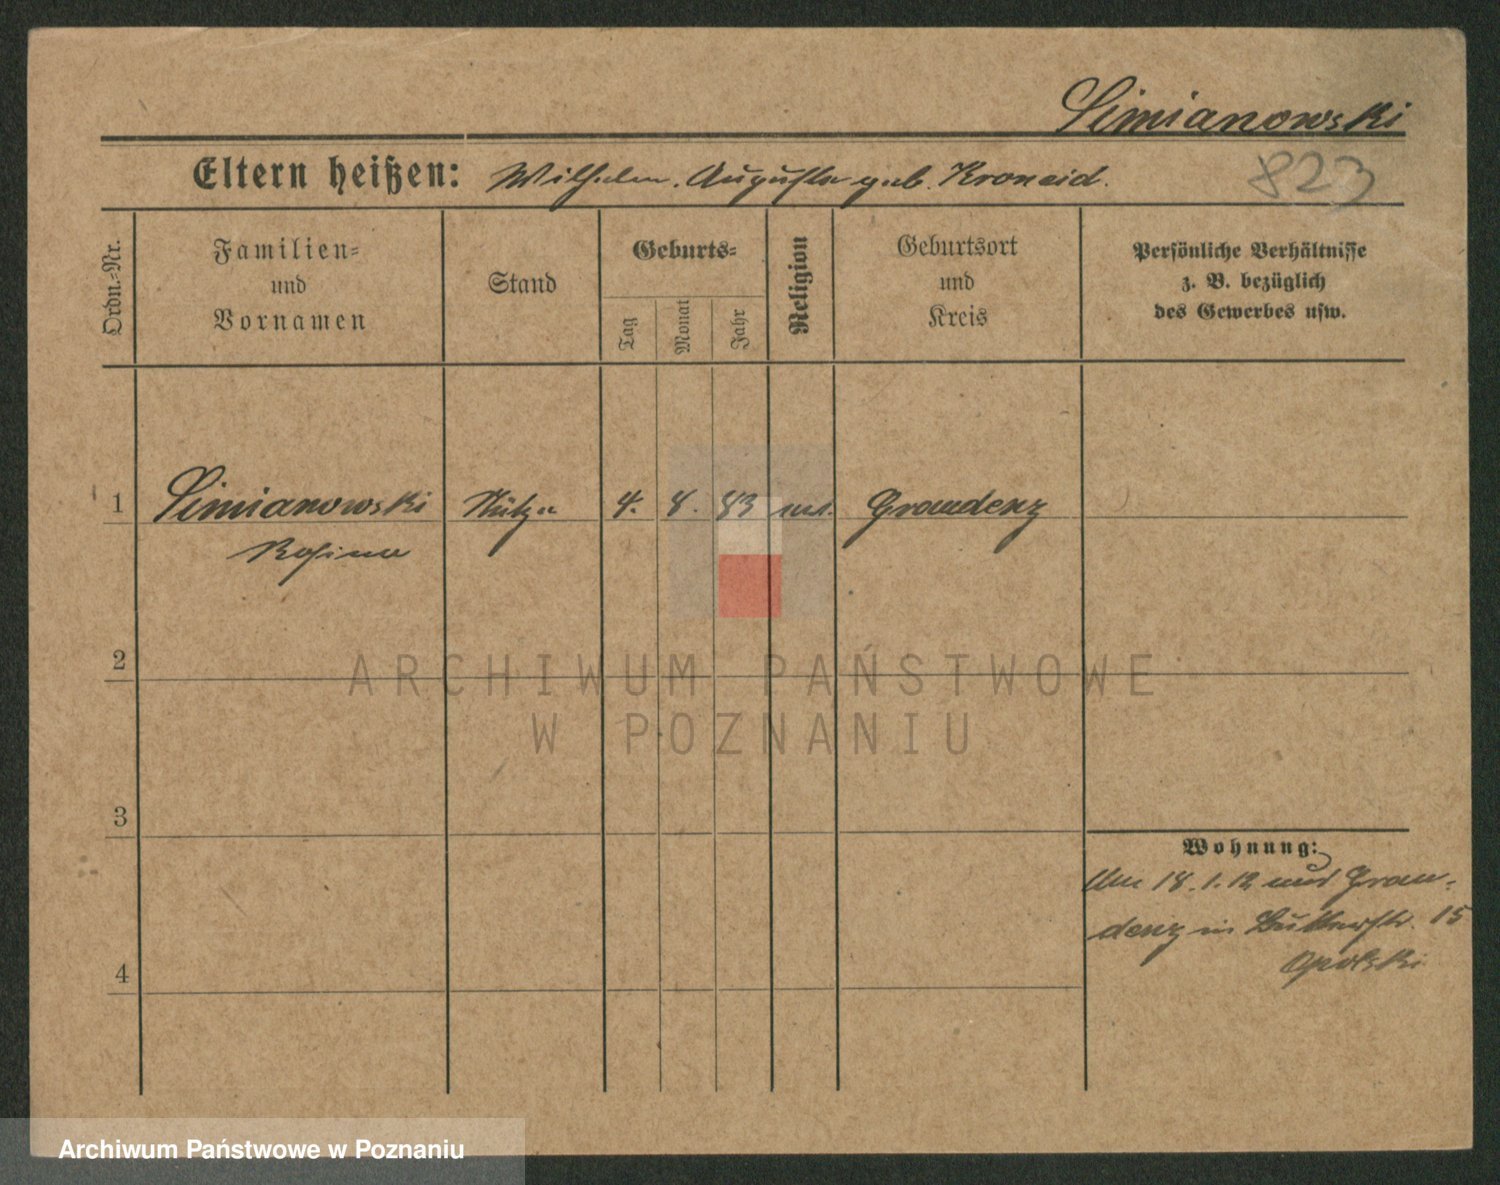 Simianowski
Eltern heißen: Wilhelm, Augusta geb. Kroneid.
823
Ordn.-Nr.
Familien-
und
Vornamen
Stand
Geburts-
Tag
Monat
Jahr
Religion
Geburtsort
und
Kreis
Persönliche Verhältnisse
z. B. bezüglich
des Gewerbes usw.
1 Simianowski Stütze 4. 8. 83 Graudenz
Rosina
2
ARCHIWUM PAŃSTWOWE
W POZNANIU
3
Wohnung:
Am 18.1.12 aus Grau-
denz in 15
Opolski
4
Archiwum Państwowe w Poznaniu